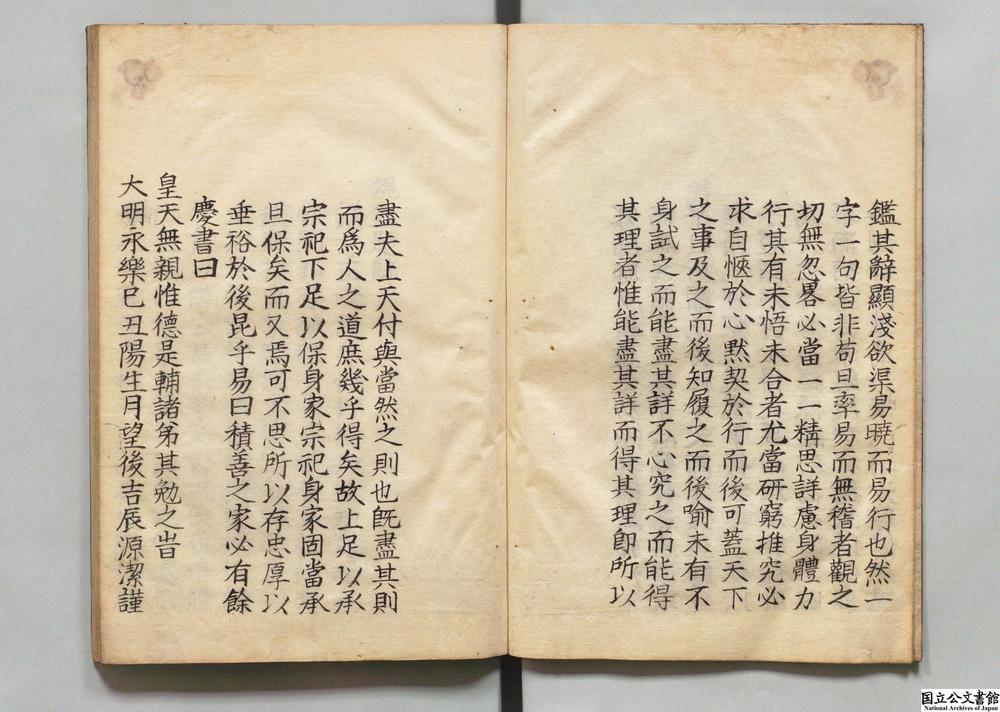 鑑其辭顯淺欲渠易曉而易行也然一
字一句皆非苟且率易而無稽者觀之
切無忽畧必當一一精思詳慮身體力
行其有未悟未合者尤當研窮推究必
求自愜於心黙契於行而後可蓋天下
之事及之而後知履之而後喻未有不
身試之而能盡其詳不心究之而能得
其理者惟能盡其詳而得其理即所以
盡夫上天付與當然之則也旣盡其則
而爲人之道庶幾乎得矣故上足以承
宗祀下足以保身家宗祀身家固當承
且保矣而又焉可不思所以存忠厚以
垂裕於後昆乎易曰積善之家必有餘
慶書曰
皇天無親惟德是輔諸弟其勉之旹
大明永樂己丑陽生月望後吉辰源潔謹
国立公文書館
National Archives of Japan